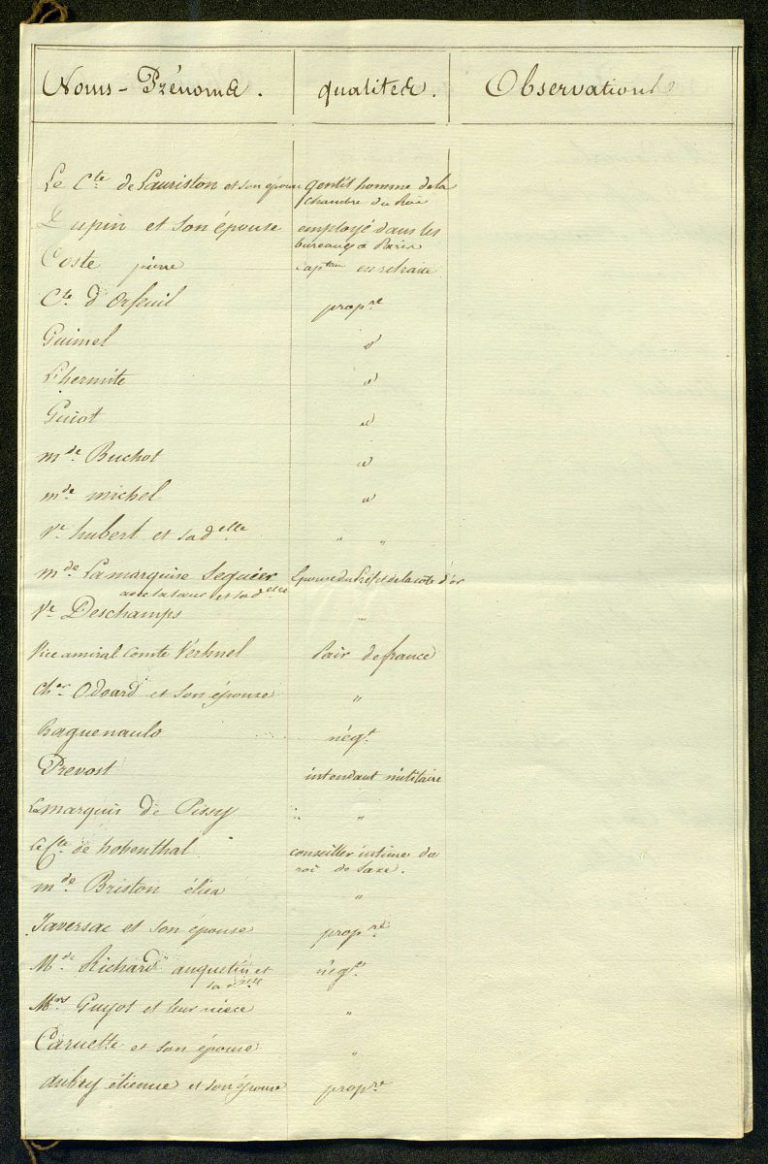 Noms - Prénoms. qualités. Observations
Le Cte de Lauriston et son épouse gentilhomme de la
chambre du Roi
Dupin et son épouse employé dans les
bureaux à Paris
Coste pierre capitne en retraite
Cte d'Orfeuil propre
Guimel d
Lhermite d
Guiot d
mde Buchot d
mde michel d
Ve hubert et sa delle " "
mde La marquise Seguier Epouse du Préfet de la côte d'or
avec sa sœur et sa delle
Ve Deschamps "
Vice amiral comte Verhuel Pair de france
cher Odoard et son épouse "
Raguenault négt
Prevost intendant militaire
Le marquis de Pissy " "
Le Cte de hohenthal conseiller intime du
roi de Saxe.
mde Briston "
Javersac et son épouse propre
Mde Richard augustin et négt
Mrs Guyot et leur niece "
Caruette et son épouse "
aubry étienne et son épouse propre